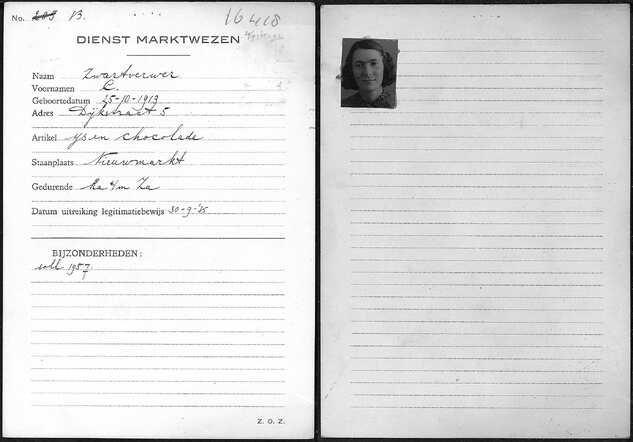 No. 208 B.
16418
DIENST MARKTWEZEN
Naam Zwartverwer
Voornamen C.
Geboortedatum 25-10-1913
Adres Dijkstraat 5
Artikel ijs en chocolade
Staanplaats Nieuwmarkt
Gedurende Ma t/m Za
Datum uitreiking legitimatiebewijs 30-9-'35
BIJZONDERHEDEN:
1957
Z. O. Z.